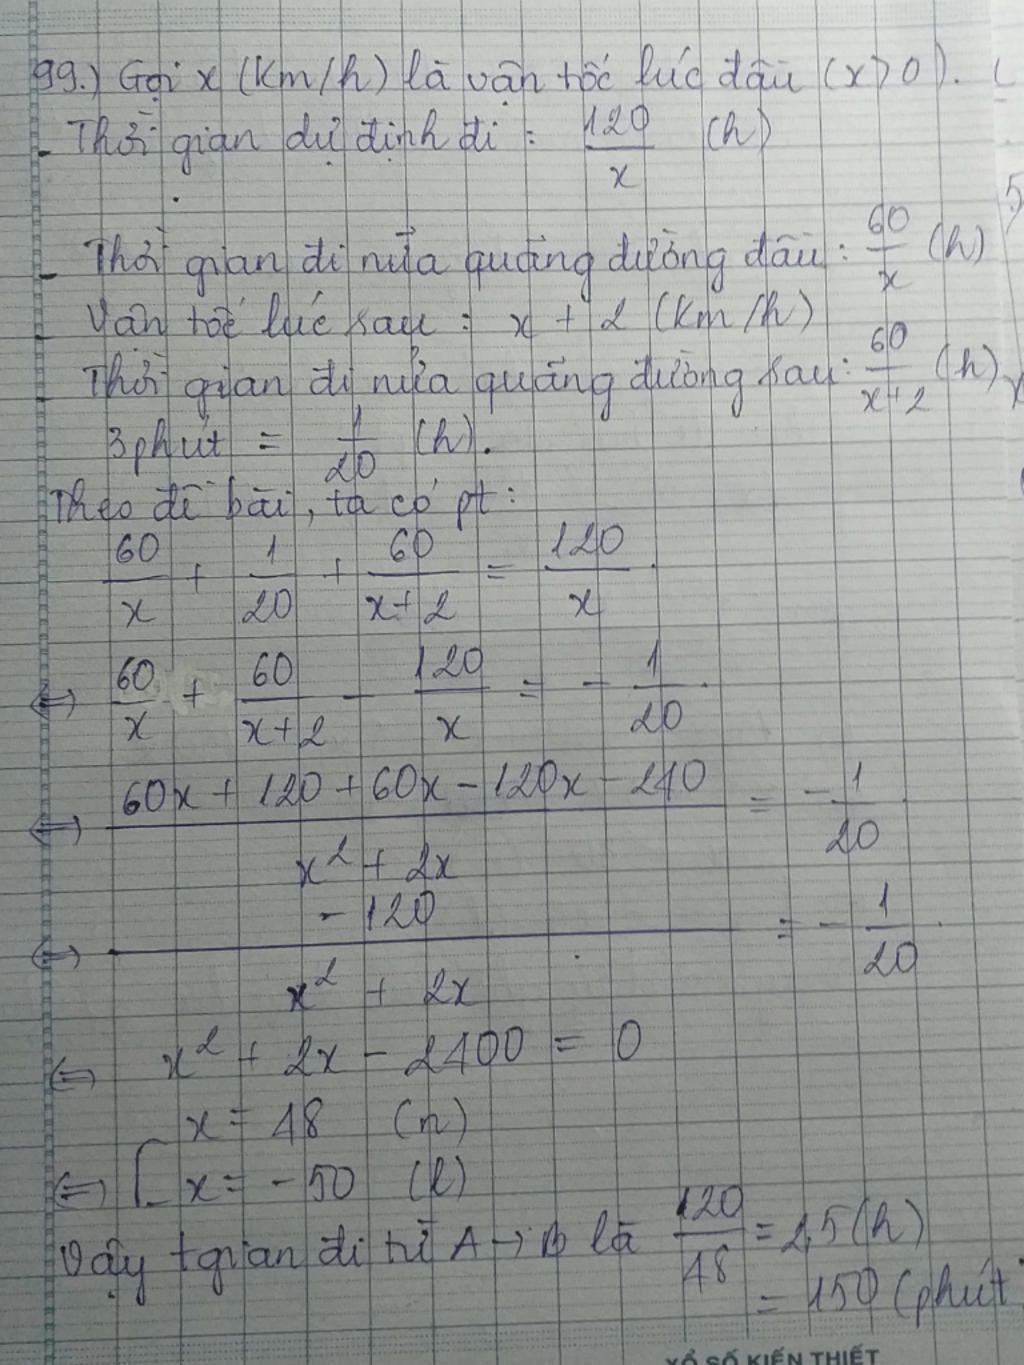 99.) Gọi x (km/h) là vận tốc lúc đầu (x>0).
- Thời gian dự định đi : 120/x (h)
- Thời gian đi nửa quãng đường đầu : 60/x (h)
- Vận tốc lúc sau : x + 2 (km/h)
- Thời gian đi nửa quãng đường sau : 60/(x+2) (h)
3 phút = 1/20 (h).
Theo đề bài, ta có pt :
60/x + 1/20 + 60/(x+2) = 120/x
⇔ 60/x + 60/(x+2) - 120/x = - 1/20
⇔ (60x + 120 + 60x - 120x - 240)/(x² + 2x) = - 1/20
⇔ - 120/(x² + 2x) = - 1/20
⇔ x² + 2x - 2400 = 0
⇔ [ x = 48 (n)
x = - 50 (l)
Vậy tgian đi từ A → B là 120/48 = 2,5 (h)
= 150 (phút
XỔ SỐ KIẾN THIẾT